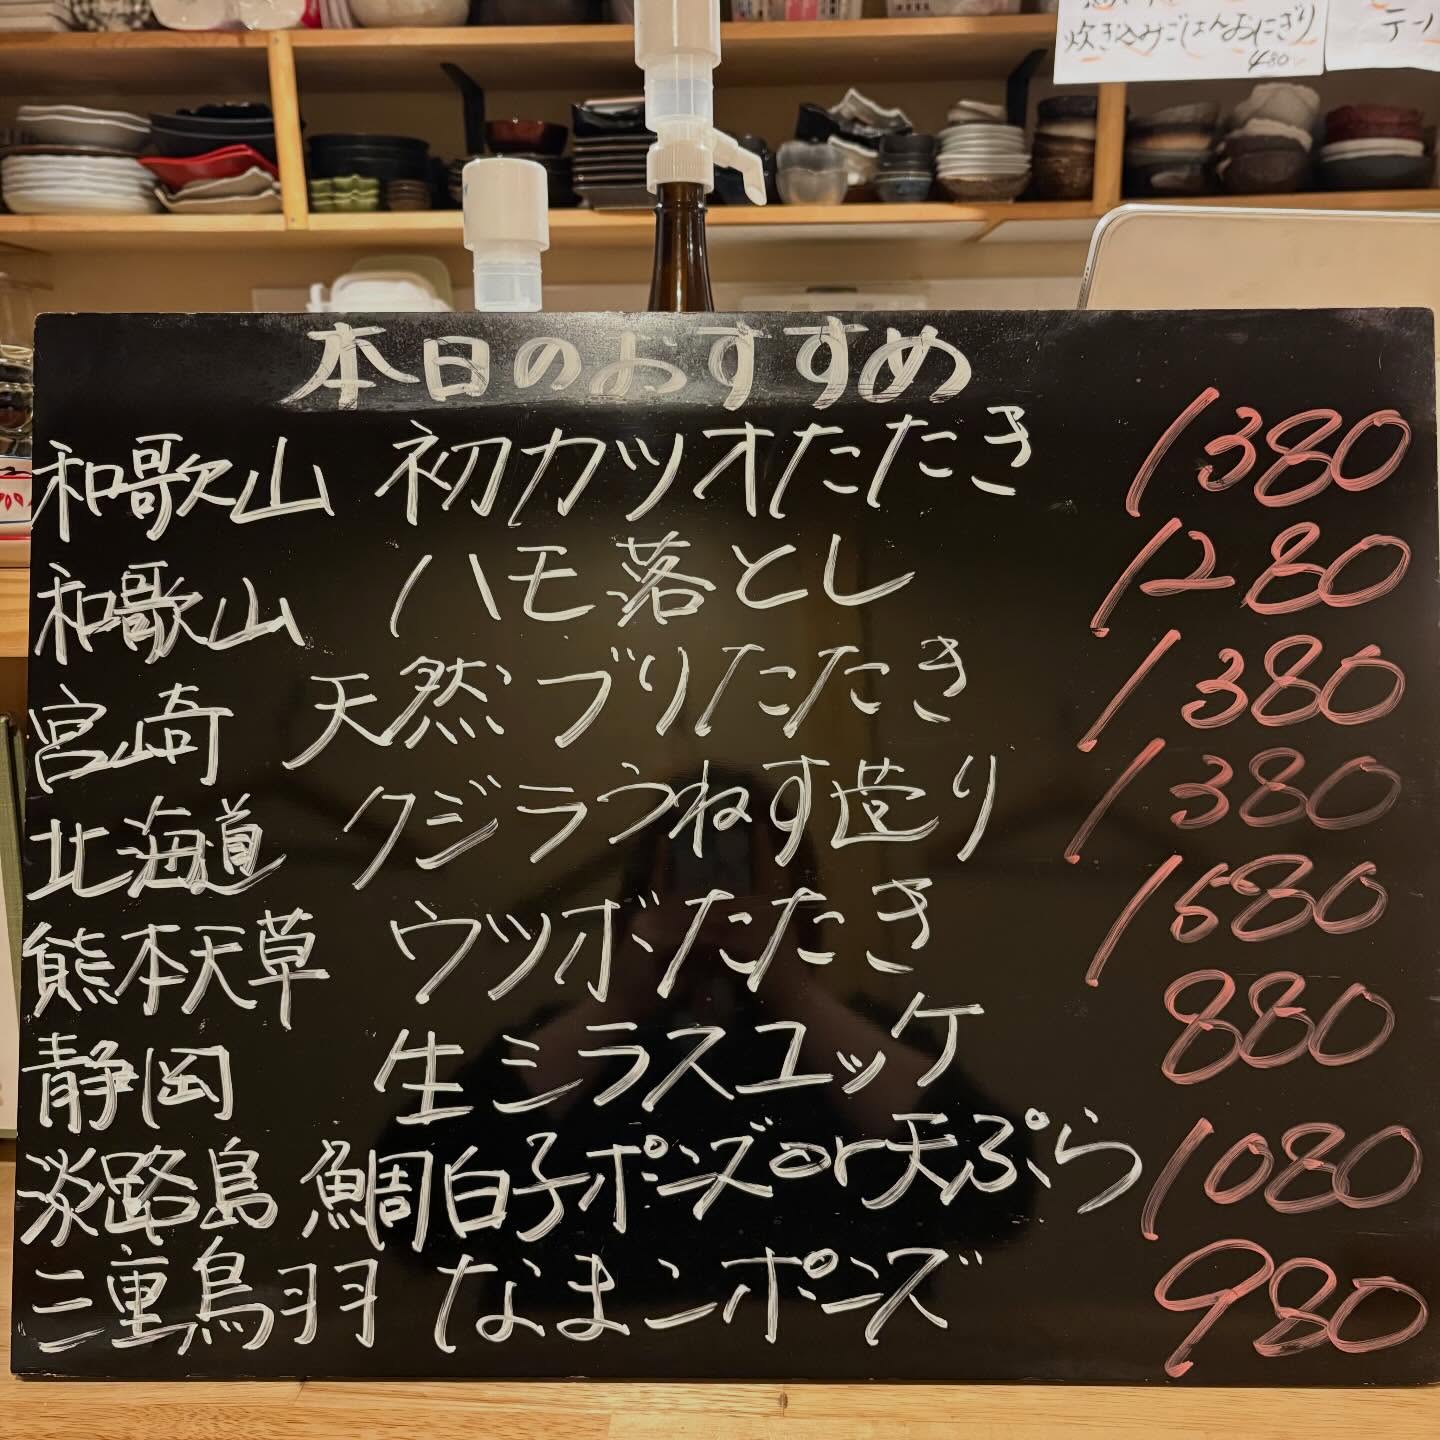 炊き込みごはんおにぎり
480
テー
本日のおすすめ
和歌山 初カツオたたき 1380
和歌山 ハモ落とし 1280
宮崎 天然ブリたたき 1380
北海道 クジラうねす造り 1380
熊本天草 ウツボたたき 1580
静岡 生シラスユッケ 880
淡路島 鯛白子ポンズor天ぷら 1080
三重鳥羽 なまこポンズ 980